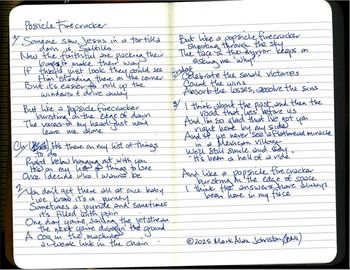 Posicle Firecracker
1/ Someone saw Jesus in a tortilla
down in Saltillo
Now the faithful are packing their
bags to make their way
If they'd just look they could see
him standing there on the corner
But it's easier to roll up the
windows & drive away
But like a popsicle firecracker
bursting on the edge of dawn
The voices in my head just won't
leave me alone
Ch: It's there on my list of things
to do
Right below hanging out with you
It's on my list of things to be
Once I decide who I wanna be
2/ You don't get there all at once baby
cuz it's a journey
Sometimes a joyride and sometimes
it's filled with pain
One day you're sailing the jetstream
the next you're dragging the ground
A cog in the machine
a weak link in the chain
But like a popsicle firecracker
shooting through the sky
The face in the mirror keeps on
asking me why?
Bridge
Celebrate the small victories
Count the wins
Absorb the losses, absolve the sins
3/ I think about the past and then the
road that lies before us
And I'm so glad that I've got you
right here by my side
And if we never see a flatbread miracle
in a Mexican village
We'll still smile and say
it's been a hell of a ride
And like a popsicle firecracker
bursting on the edge of space
I think the answers have always
been here in my face
© 2025 Mark Alan Johnston (BMI)